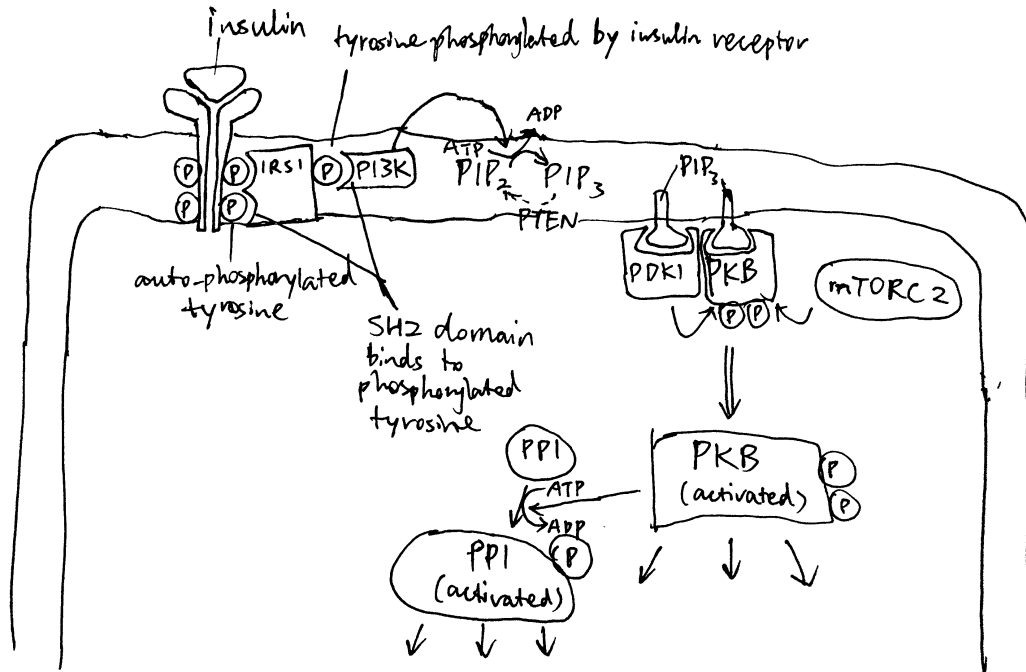 insulin
tyrosine phosphorylated by insulin receptor
ADP
ATP
P P IRS1 P PI3K
PIP2 PIP3
PTEN
P P
PIP3
auto-phosphorylated
tyrosine
PDK1 PKB
mTORC2
P P
SH2 domain
binds to
phosphorylated
tyrosine
PP1
ATP
ADP
PKB
(activated)
P
P
PP1
(activated)
P